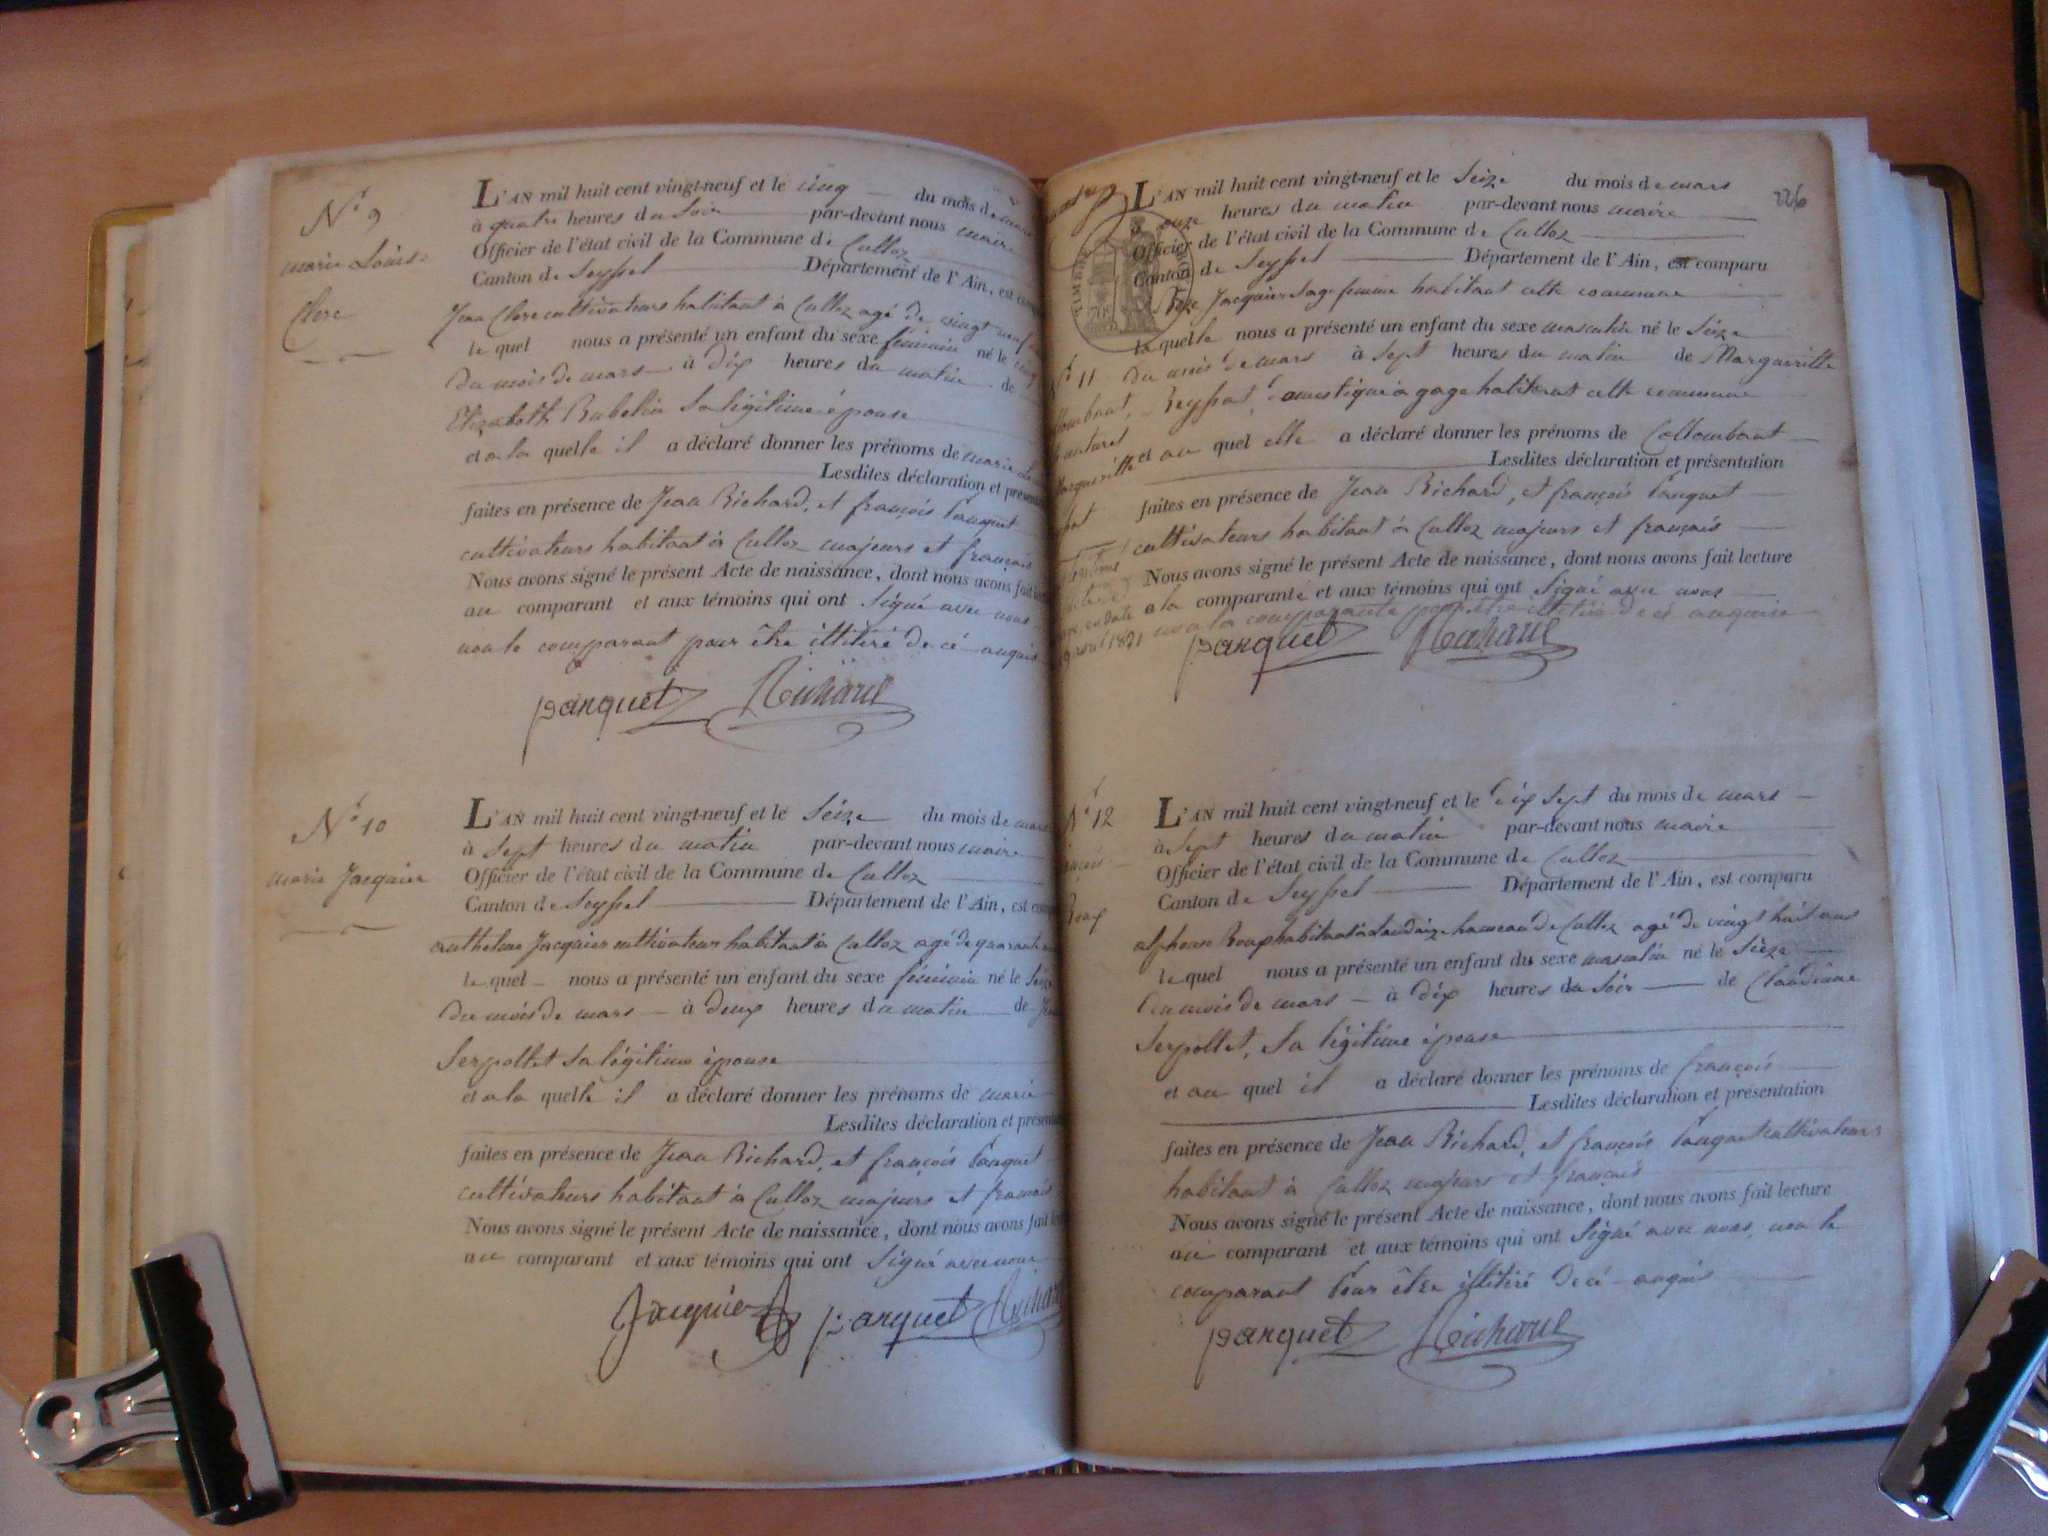 N° 9
marie Louise
Clerc
L'AN mil huit cent vingt-neuf et le cinq du mois de mars
à quatre heures du soir par-devant nous maire
Officier de l'état civil de la Commune de Culloz
Canton de Seyssel Département de l'Ain, est
Jean Clerc cultivateur habitant à Culloz agé de vingt neuf
le quel nous a présenté un enfant du sexe féminin né le cinq
du mois de mars à dix heures du matin de
Elizabeth Rubelin sa légitime épouse
et a la quelle il a déclaré donner les prénoms de marie
Lesdites déclaration et
faites en présence de Jean Richard, et françois panquet
cultivateurs habitant à Culloz majeurs et français
Nous avons signé le présent Acte de naissance, dont nous avons fait
au comparant et aux témoins qui ont signé avec nous
non le comparant pour être illitiré de cé anquis
panquet Richard
N° 10
marie Jacquier
L'AN mil huit cent vingt-neuf et le séize du mois de mars
à sept heures du matin par-devant nous maire
Officier de l'état civil de la Commune de Culloz
Canton de Seyssel Département de l'Ain, est
anthelme Jacquier cultivateur habitant à Culloz agé de quarante
le quel nous a présenté un enfant du sexe féminin né le séize
du mois de mars à deux heures du matin de
Serpollet sa légitime épouse
et a la quelle il a déclaré donner les prénoms de marie
Lesdites déclaration et
faites en présence de Jean Richard, et françois panquet
cultivateurs habitant à Culloz majeurs et français
Nous avons signé le présent Acte de naissance, dont nous avons fait
au comparant et aux témoins qui ont signé avec nous
Jacquier panquet Richard
226
TIMBRE ROYAL
11
L'AN mil huit cent vingt-neuf et le seize du mois de mars
onze heures du matin par-devant nous maire
Officier de l'état civil de la Commune de Culloz
Canton de Seyssel Département de l'Ain, est comparu
Jacquier sage femme habitant cette commune
la quelle nous a présenté un enfant du sexe masculin né le séize
du mois de mars à sept heures du matin de Margueritte
Reyssat, domestique à gage habitant cette commune
et au quel elle a déclaré donner les prénoms de Collombant
Lesdites déclaration et présentation
faites en présence de Jean Richard, et françois panquet
cultivateurs habitant à Culloz majeurs et français
Nous avons signé le présent Acte de naissance, dont nous avons fait lecture
a la comparante et aux témoins qui ont signé avec nous
non la comparante pour être illitiré de cé anquise
panquet Richard
N° 12
Roux
L'AN mil huit cent vingt-neuf et le dix sept du mois de mars
à sept heures du matin par-devant nous maire
Officier de l'état civil de la Commune de Culloz
Canton de Seyssel Département de l'Ain, est comparu
alphonse Roux habitant à Landaize hameau de Culloz agé de vingt huit ans
le quel nous a présenté un enfant du sexe masculin né le séize
du mois de mars à dix heures du soir de Claudine
Serpollet, sa légitime épouse
et au quel il a déclaré donner les prénoms de françois
Lesdites déclaration et présentation
faites en présence de Jean Richard, et françois panquet cultivateurs
habitant à Culloz majeurs et français
Nous avons signé le présent Acte de naissance, dont nous avons fait lecture
au comparant et aux témoins qui ont signé avec nous, non le
comparant pour être illitiré de cé anquis
panquet Richard